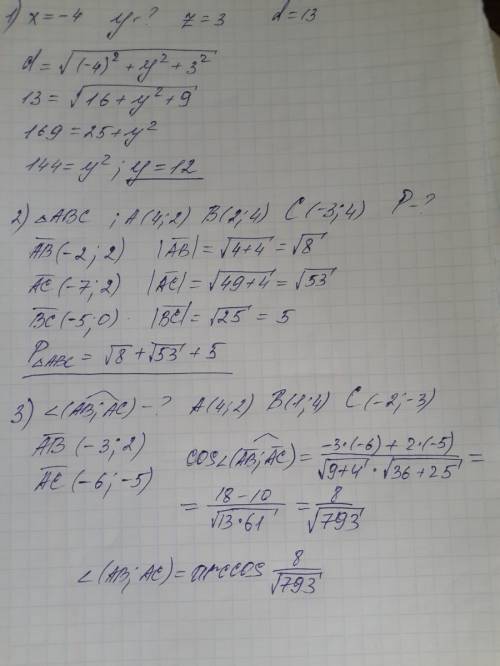 1) x = -4 y - ? z = 3 d = 13
d = √((-4)² + y² + 3²)
13 = √(16 + y² + 9)
169 = 25 + y²
144 = y² ; y = 12
2) △ABC ; A(4; 2) B(2; 4) C(-3; 4) P - ?
AB̅(-2; 2) |AB̅| = √(4+4) = √8
AC̅(-7; 2) |AC̅| = √(49+4) = √53
BC̅(-5; 0) |BC̅| = √25 = 5
P△ABC = √8 + √53 + 5
3) ∠(AB̅; AC̅) - ? A(4; 2) B(1; 4) C(-2; -3)
AB̅(-3; 2)
AC̅(-6; -5)
cos∠(AB̅; AC̅) = (-3·(-6) + 2·(-5))/(√(9+4) · √(36+25)) =
= (18-10)/√(13·61) = 8/√793
∠(AB; AC) = arccos 8/√793